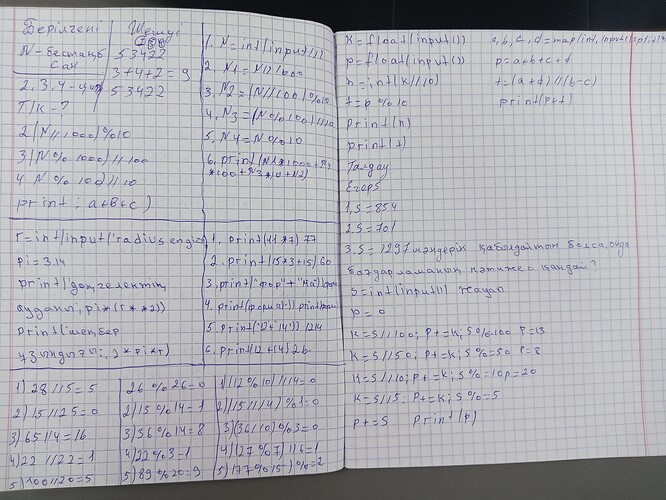 Берілгені
N-бестаңб
Сан
2,3,4-циф
Т/к-?
2(N//1000)%10
3(N%1000)//100
4 N%100//10
print(a+b+c)
Шешуі
53422
3+4+2=9
53422
1. N=int(input())
2. N1=N//1000
3. N2=(N//100)%10
4. N3=(N%100)//10
5. N4=N%10
6. print(N1*1000+N4
*100+N3*10+N2)
r=int(input('radius engiz'
pi=3.14
print('дөңгелектің
ауданы', pi*(r**2))
print('шеңбер
ұзындығы', 2*pi*r)
1. print(11*7) 77
2. print(15*3+15) 60
3. print("фор"+"ма")
4. print(форма)
5. print('12+14') 1214
6. print(12+14) 26.
1) 28//5=5
2) 15//25=0
3) 65//4=16
4) 22//22=1
5) 100//20=5
26%26=0
2) 15%14=1
3) 36%14=8
4) 22%3=1
5) 89%20=9
1) (12%10)//14=0
2) (15//14)%1=0
3) (36//10)%3=0
4) (27%7)//6=1
5) (177%15)%=2
k=float(input())
p=float(input())
h=int(k//10)
t=p%10
print(h)
print(t)
a,b,c,d=map(int, input().split
p=a+b+c+d
t=(a+d)//(b-c)
print(p+t)
Талдау
Егер S
1. S=854
2. S=701
3. S=1297 мәндерін қабылдайтын болса, онда
бағдарламаның нәтижесі қандай?
S=int(input()) жауап
p=0
k=S//100; p+=k; S%=100 P=13
k=S//50; p+=k; S%=50 P=8
k=S//10; p+=k; S%=10 p=20
k=S//5; p+=k; S%=5
p+=S print(p)